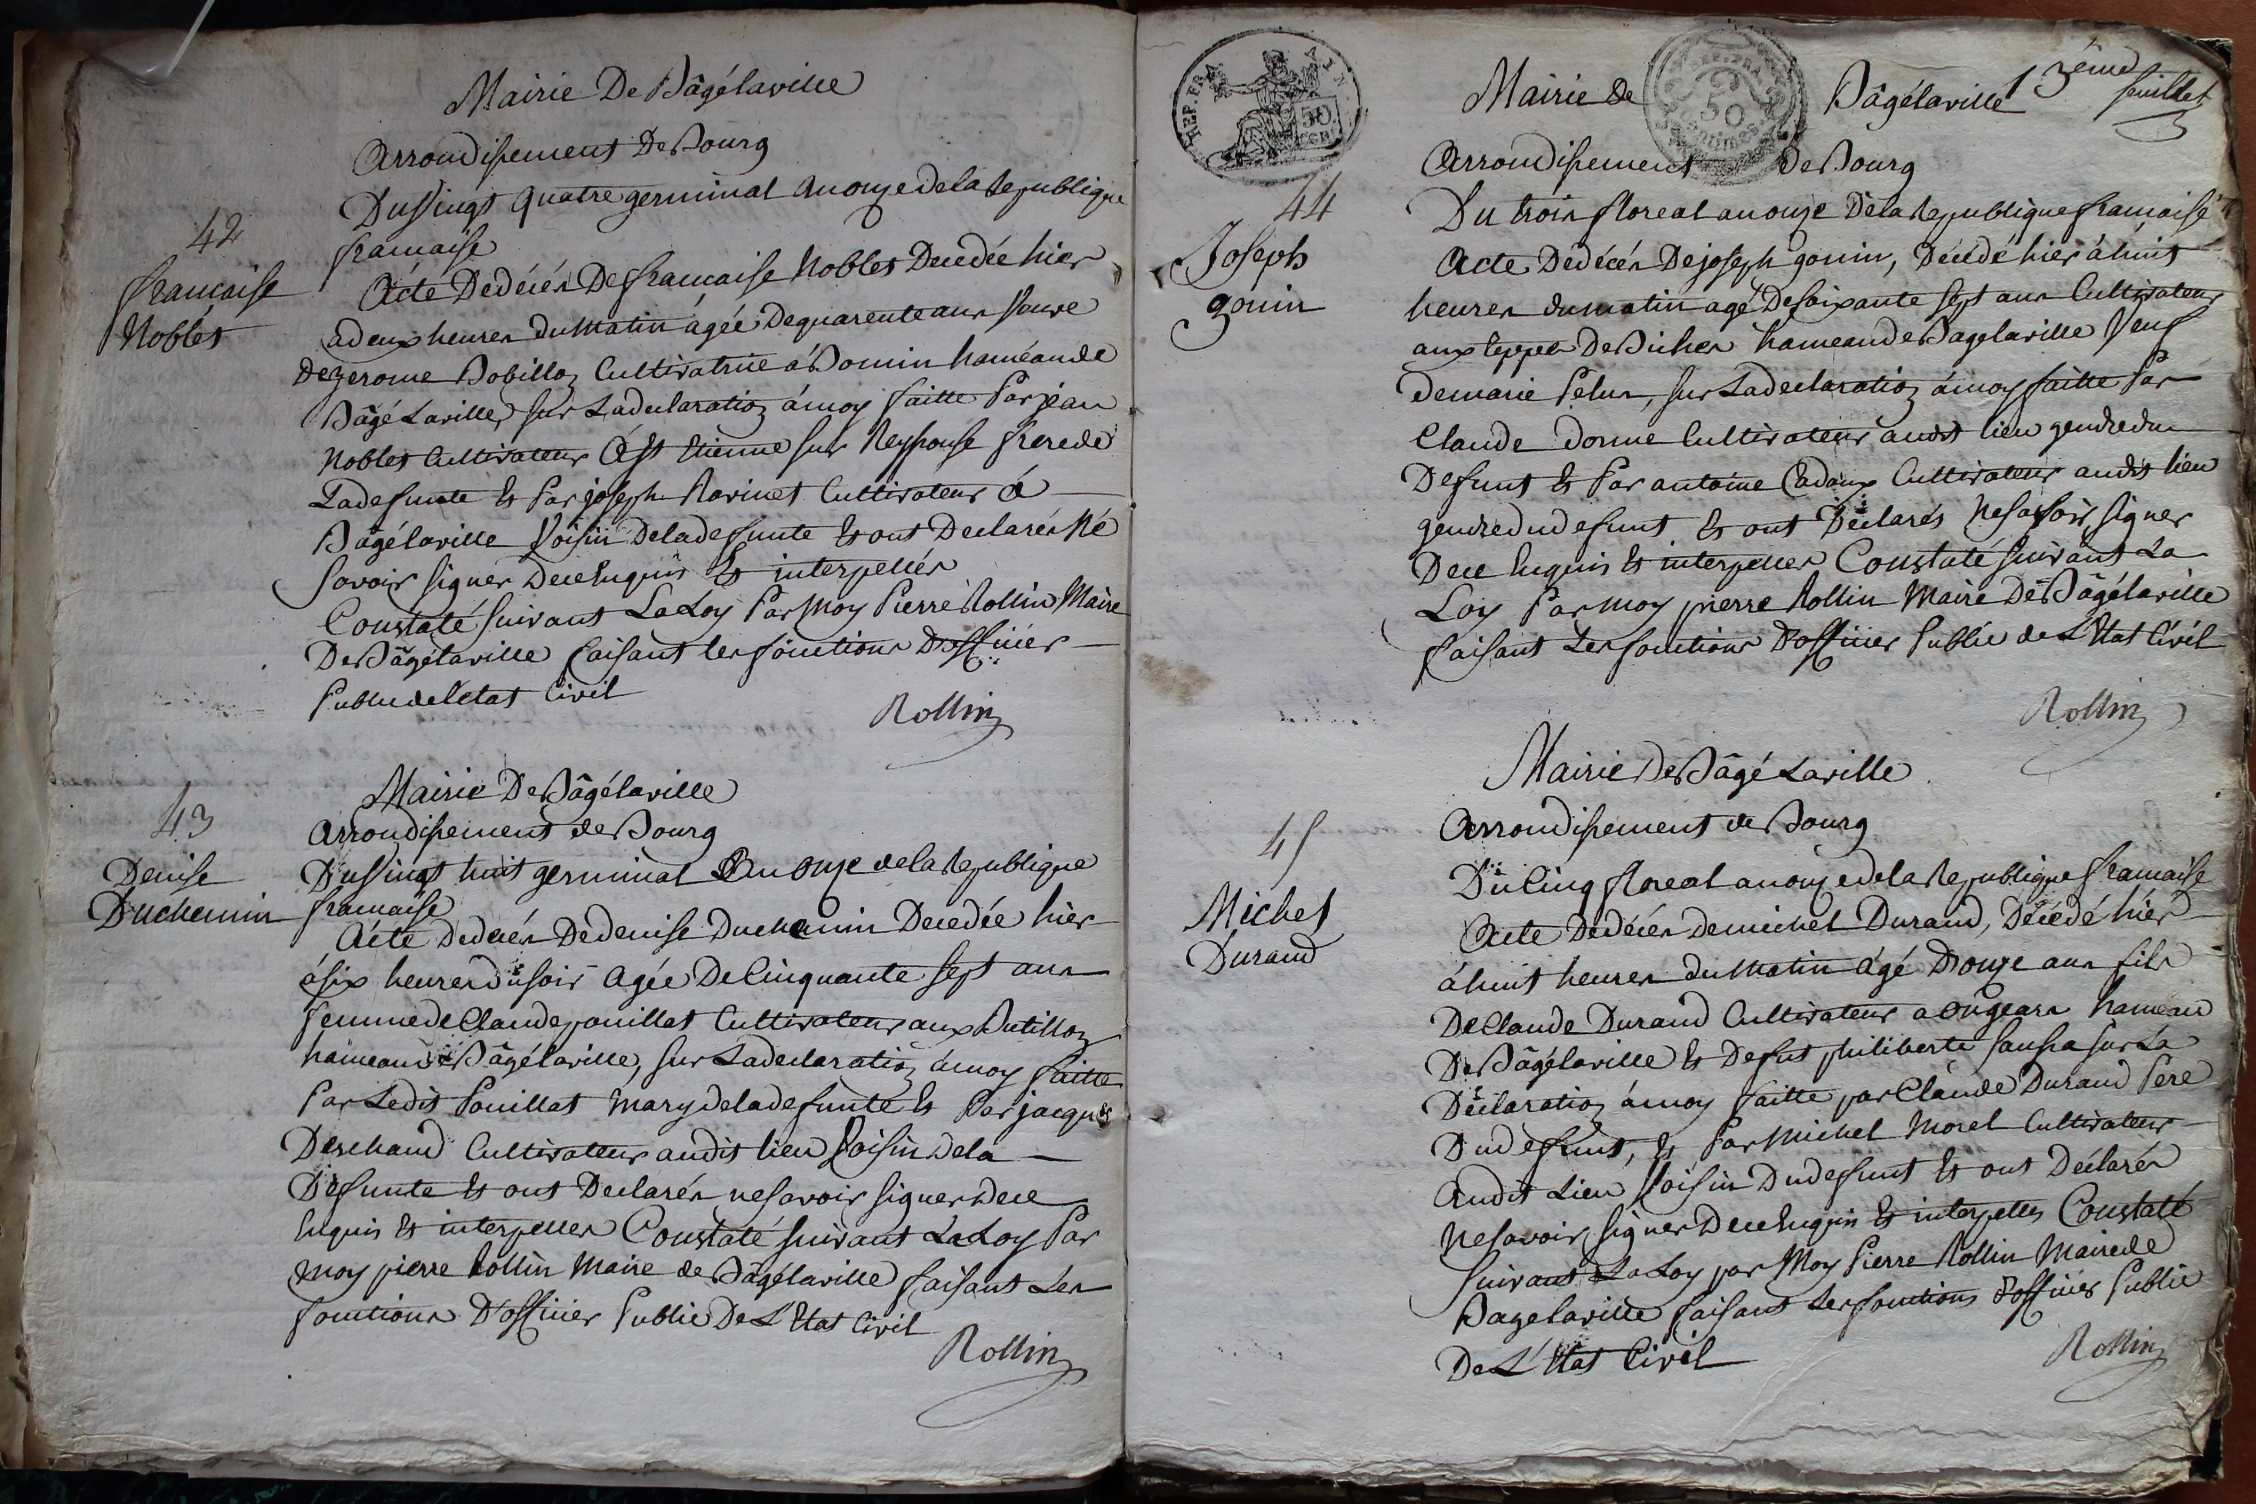 Mairie De Bâgélaville
Arrondissement De Bourg
Du Vingt quatre germinal an onze de la Republique
francaise
42
francaise
Nobles
Acte De décés De francaise Nobles Decedée hier
a deux heures du Matin agée De quarente ans Veuve
de Jerome Bobillon Cultivatrice á Bomin haméau de
Bâgé Laville, sur La declaration á moy faitte Par jean
Nobles Cultivateur á St Etienne sur Reyssouse frere de
La defunte et Par joseph Ravinet Cultivateur á
Bâgélaville Voisin De la defunte et ont Declarés Ne
Savoir signer De ce Enquis et interpellés
Constaté suivant La Loy Par Moy Pierre Rollin Maire
De Bâgélaville faisant les fonctions D'officier
Public de l'etat Civil
Rollin
Mairie De Bâgélaville
43
Arrondissement de Bourg
Denise
Duchemin
Du Vingt huit germinal an onze de la Republique
francaise
Acte De décés De denise Duchemin Decedée hier
á six heures du soir agée De Cinquante sept ans
femme de Claude pouillat Cultivateur aux Butillon
hameau de Bâgélaville, sur La declaration á moy faitte
Par Ledit Pouillat Mary de la defunte et Par jacques
Deschand Cultivateur audit lieu Voisin de la
Défunte et ont Declarés ne savoir signer de ce
Enquis et interpelles Constaté suivant La Loy Par
moy pierre Rollin Maire de Bâgélaville faisant Les
fonctions D'officier Public De L'Etat Civil
Rollin
REP. FRA. AIN.
50
CEN.
REP. FRA.
50
centimes
13eme
feuillet
Mairie de Bâgélaville
Arrondissement De Bourg
44
Joseph
gonin
Du trois floreal an onze De la Republique francaise
Acte De décés De joseph gonin, Décédé hier á huit
heures du matin agé De soixante sept ans Cultivateur
aux teppes De Biches hameau de Bagelaville Veuf
de marie Pelus, sur La declaration á moy faitte Par
Claude Donne Cultivateur audit lieu gendre du
Defunt et Par antoine Cadoux Cultivateur audit lieu
gendre du defunt et ont Déclarés Ne savoir signer
De ce Enquis et interpelles Constaté suivant La
Loy Par moy pierre Rollin Maire De Bâgélaville
faisant Les fonctions D'officier Public de L'Etat Civil
Rollin
Mairie De Bâgé Laville
45
Michel
Durand
Arrondissement de Bourg
Du Cinq floreal an onze de la Republique francaise
Acte De décés de michel Durand, Décédé hier
á huit heures du Matin agé D'onze ans fils
De Claude Durand Cultivateur a ongears hameau
De Bâgélaville et Defut philiberte sur La
Déclaration á moy faitte par Claude Durand Pere
Du defunt, et Par Michel Morel Cultivateur
Audit Lieu Voisin Du defunt et ont Déclarés
Ne savoir signer De ce Enquis et interpelles Constaté
suivant La Loy par Moy Pierre Rollin Maire de
Bagelaville faisant Les fonctions D'officier Public
De L'Etat Civil
Rollin